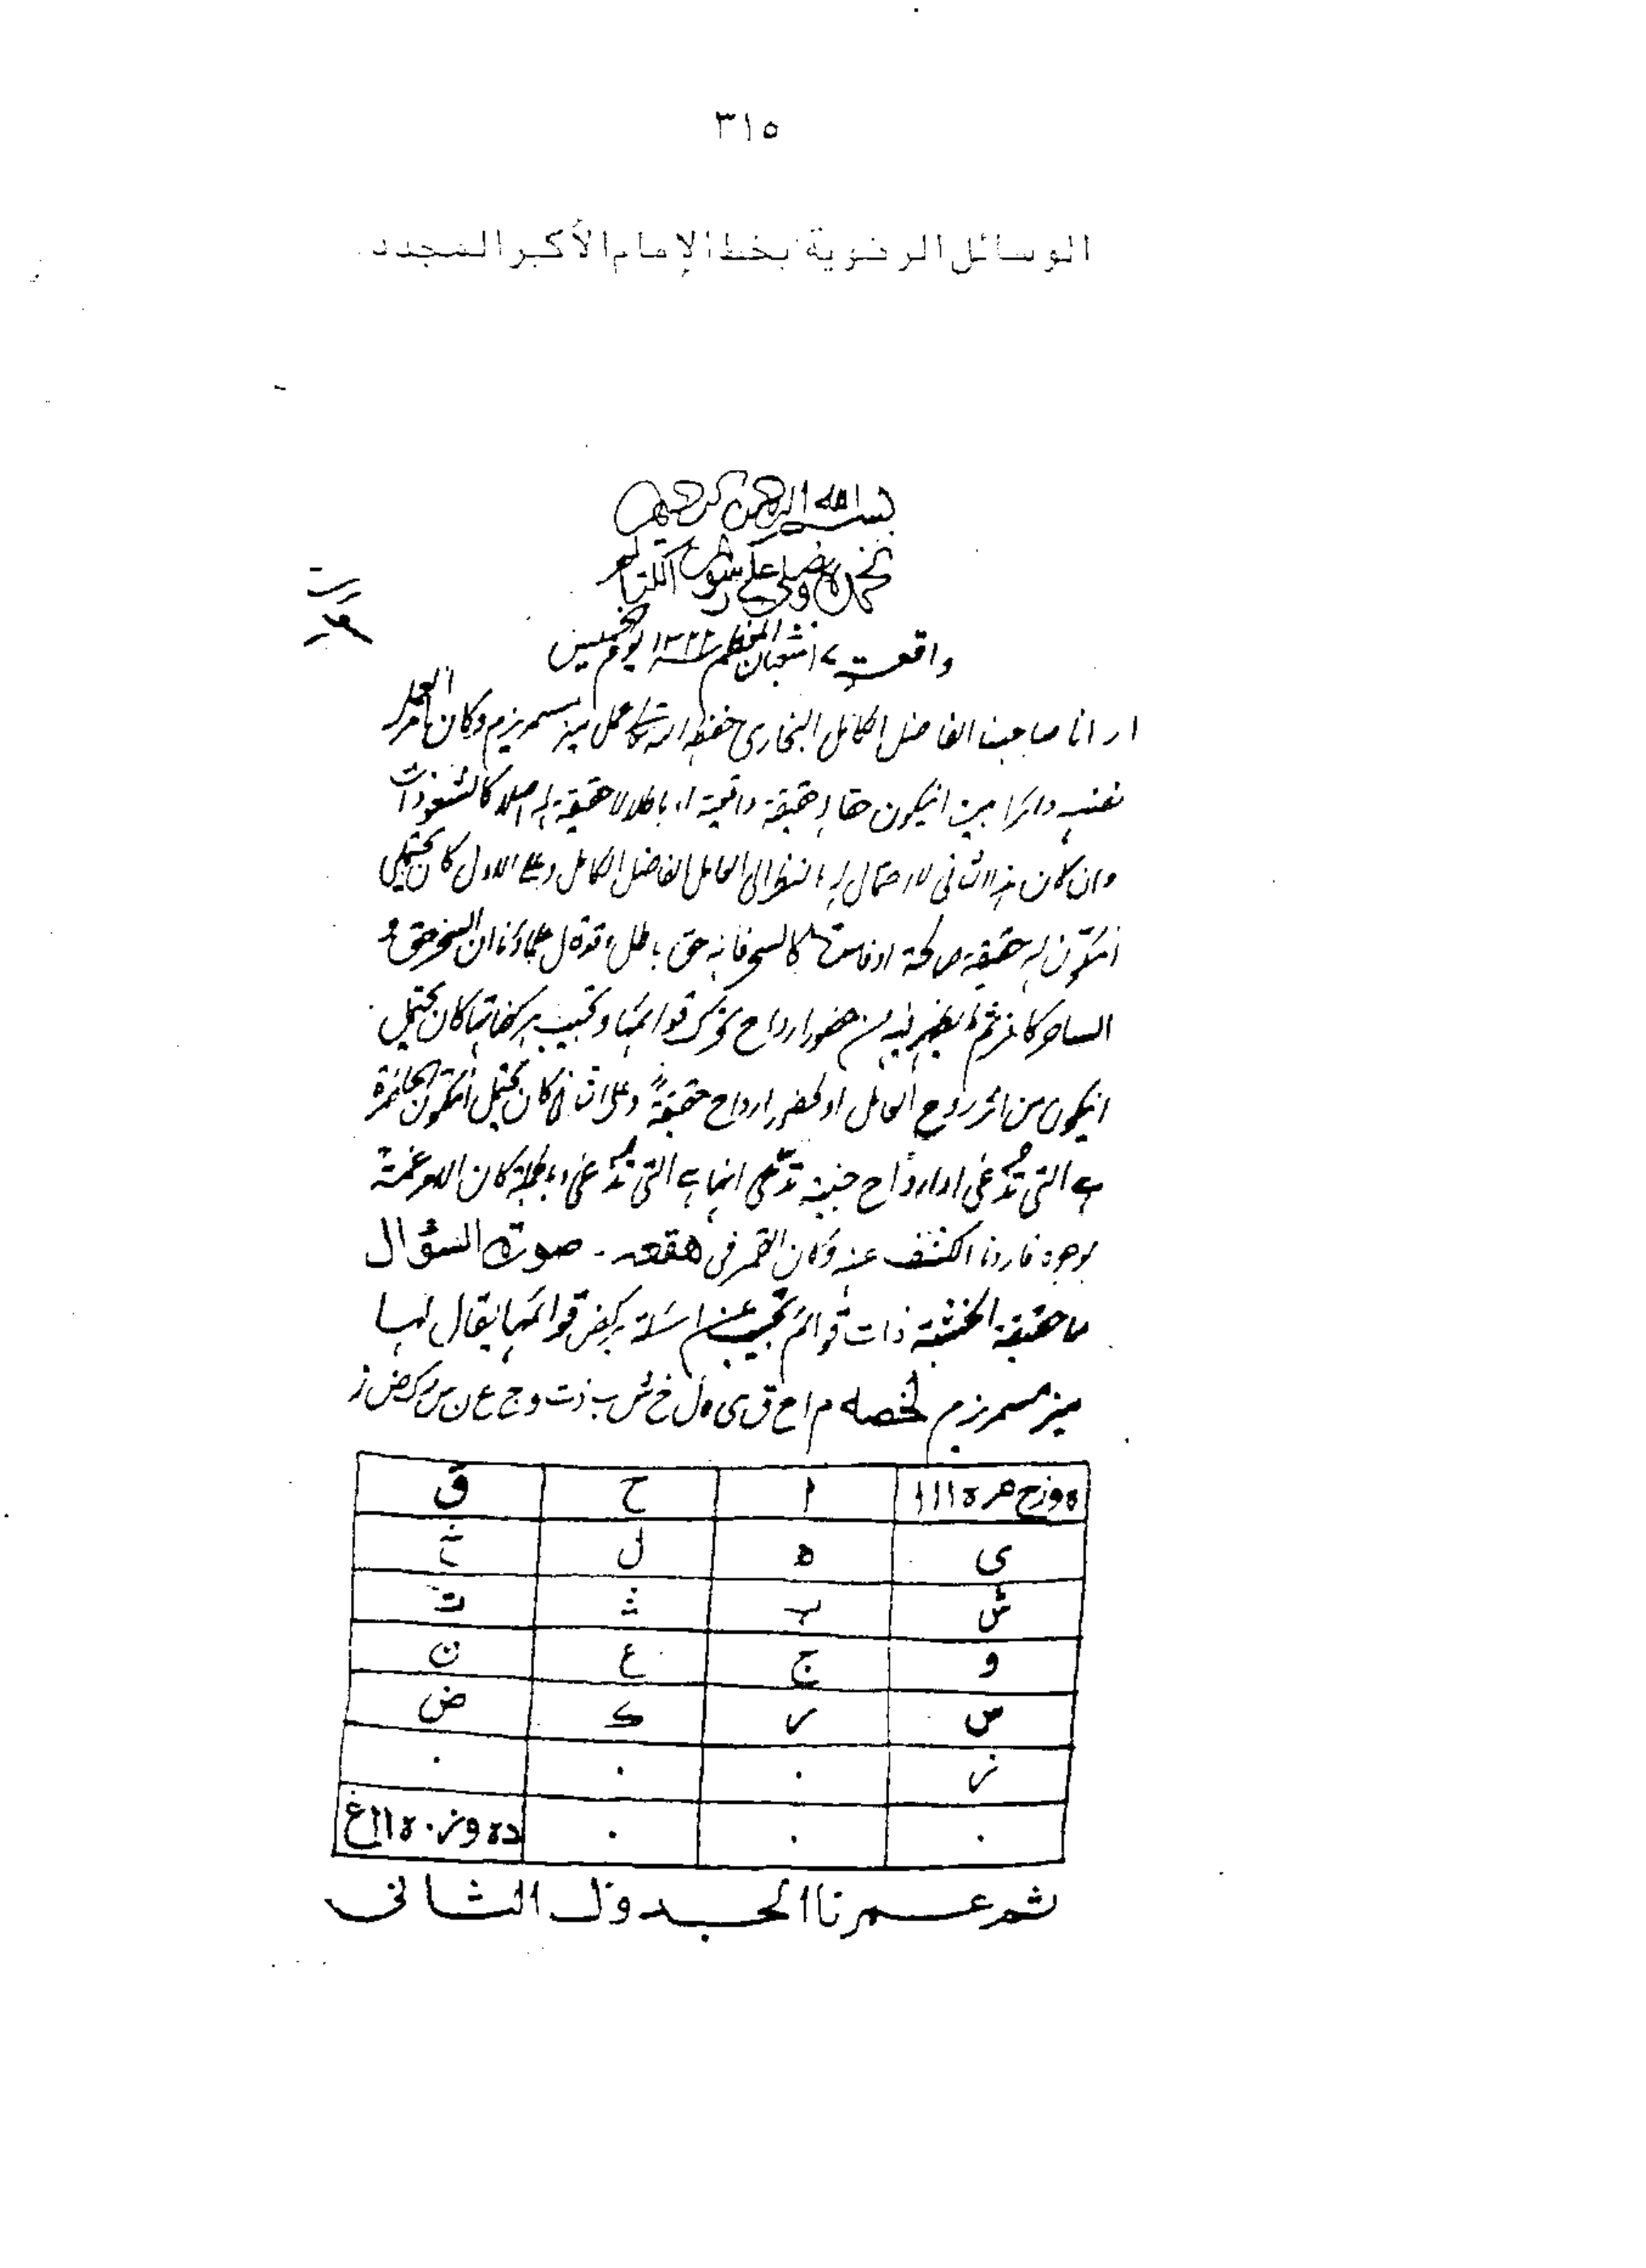 ٣١٥
الوسائل الرضوية بخط الإمام الأكبر المجدد
بسم الله الرحمن الرحيم
نحمده ونصلي على رسوله الكريم
واقعت ٧ شعبان المعظم يوم الخميس
ارانا صاحبنا الفاضل الكامل البخاري حفظه الله تعالى عمل ميز مسمريزم وكان العمل
نفسه دائرا بين انيكون حقا له حقيقة واقعية او باطلا لا حقيقة له اصلا كالشعوذات
وان كان هذا الثاني لا احتمال له بالنظر الى العامل الفاضل الكامل وعلى الاول كان يحتمل
انتكون له حقيقة صالحة او فاسدة كالسحر فانه حق باطل وقد قال علماؤنا ان السحر حق و
الساحر كافر ثم ما يظهر فيه من حضور ارواح تحرك قوائمها وتجيب بركضاتها كان يحتمل
انيكون من اثر روح العامل او لحضور ارواح حقيقة وعلى الثاني كان يحتمل انتكون الحاضرة
هي التي تدعى او ارواح جنية تدعي انها هي التي تدعى وبالجملة كان الامر غمة
بوجوه فاردنا الكشف عنه وكان القمر في هقعه - صورة السؤال
ما حقيقة الخشبة ذات قوائم تجيب عن اسئلة بركض قوائمها يقال لها
ميز مسمريزم لخصه م ا ح ق ى ه ل خ ش ب ذ ت و ج ع ن س ر ك ض ز
ا ح ق
ى ه ل خ
ش ب ذ ت
و ج ع ن
س ر ك ض
ز ٠ ٠ ٠
٠ ٠ ٠
ثم عمرنا الجدول الثانى